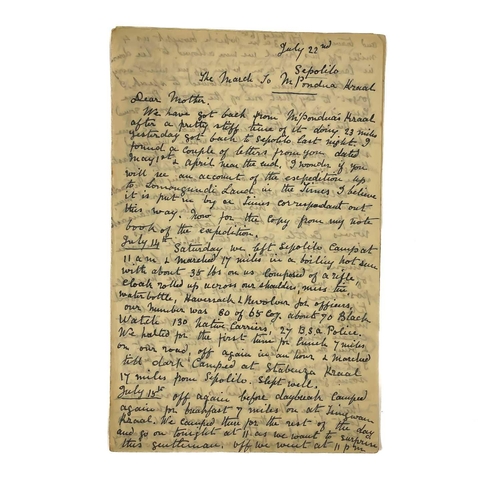 July 22nd
Sepolilo
The March To M'Pondua Kraal
Dear Mother,
We have got back from M'Ponduas Kraal
after a pretty stiff time of it doing 23 miles
yesterday got back to Sepolilo last night. I
found a couple of letters from you dated
May 1st & April near the end. I wonder if you
will see an account of the expedition up
to Lomongundi Land in the Times. I believe
it is put in by a Times correspondant out
this way. Now for the copy from my note
book of the expedition.
July 14th Saturday we left Sepolilo Camp at
11 am & marched 17 miles in a boiling hot sun
with about 35 lbs on us composed of a rifle,
cloak rolled up across our shoulder, mess tin
waterbottle, Haversack & Revolver for officers,
our number was 60 of 65 Coy. about 70 Black
Watch 130 Native Carriers, 27 B.S.a Police.
We halted for the first time for lunch 7 miles
on our road, off again in an hour & marched
till dark Camped at Stabenza Kraal
17 miles from Sepolilo. Slept well.
July 15th off again before daybreak Camped
again for breakfast 7 miles on at
Kraal. We camped there for the rest of the day
and go on tonight at 11 as we want to surprise
this gentleman. off we went at 11 p.m